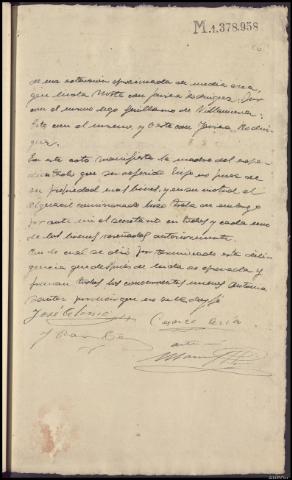 M.1.378.958
de una extensión aproximada de media area,
que linda Norte con Javier Rodriguez, Sur
con el mismo y
Este con el mismo, y Oeste con Javier Rodri-
guez.
En este acto manifiesta la madre del expe-
dientado que su referido hijo no posee de
su propiedad mas bienes, y en su virtud el
Alguacil comisionado hizo traba de embargo
por ante mi el secretario en todos y cada uno
de los bienes reseñados anteriormente.
Con lo cual se dió por terminada esta dili-
gencia que despues de leida es aprobada y
firman todos los concurrentes menos Antonia
Santos por decir que no sabe doy fe
José Alonso